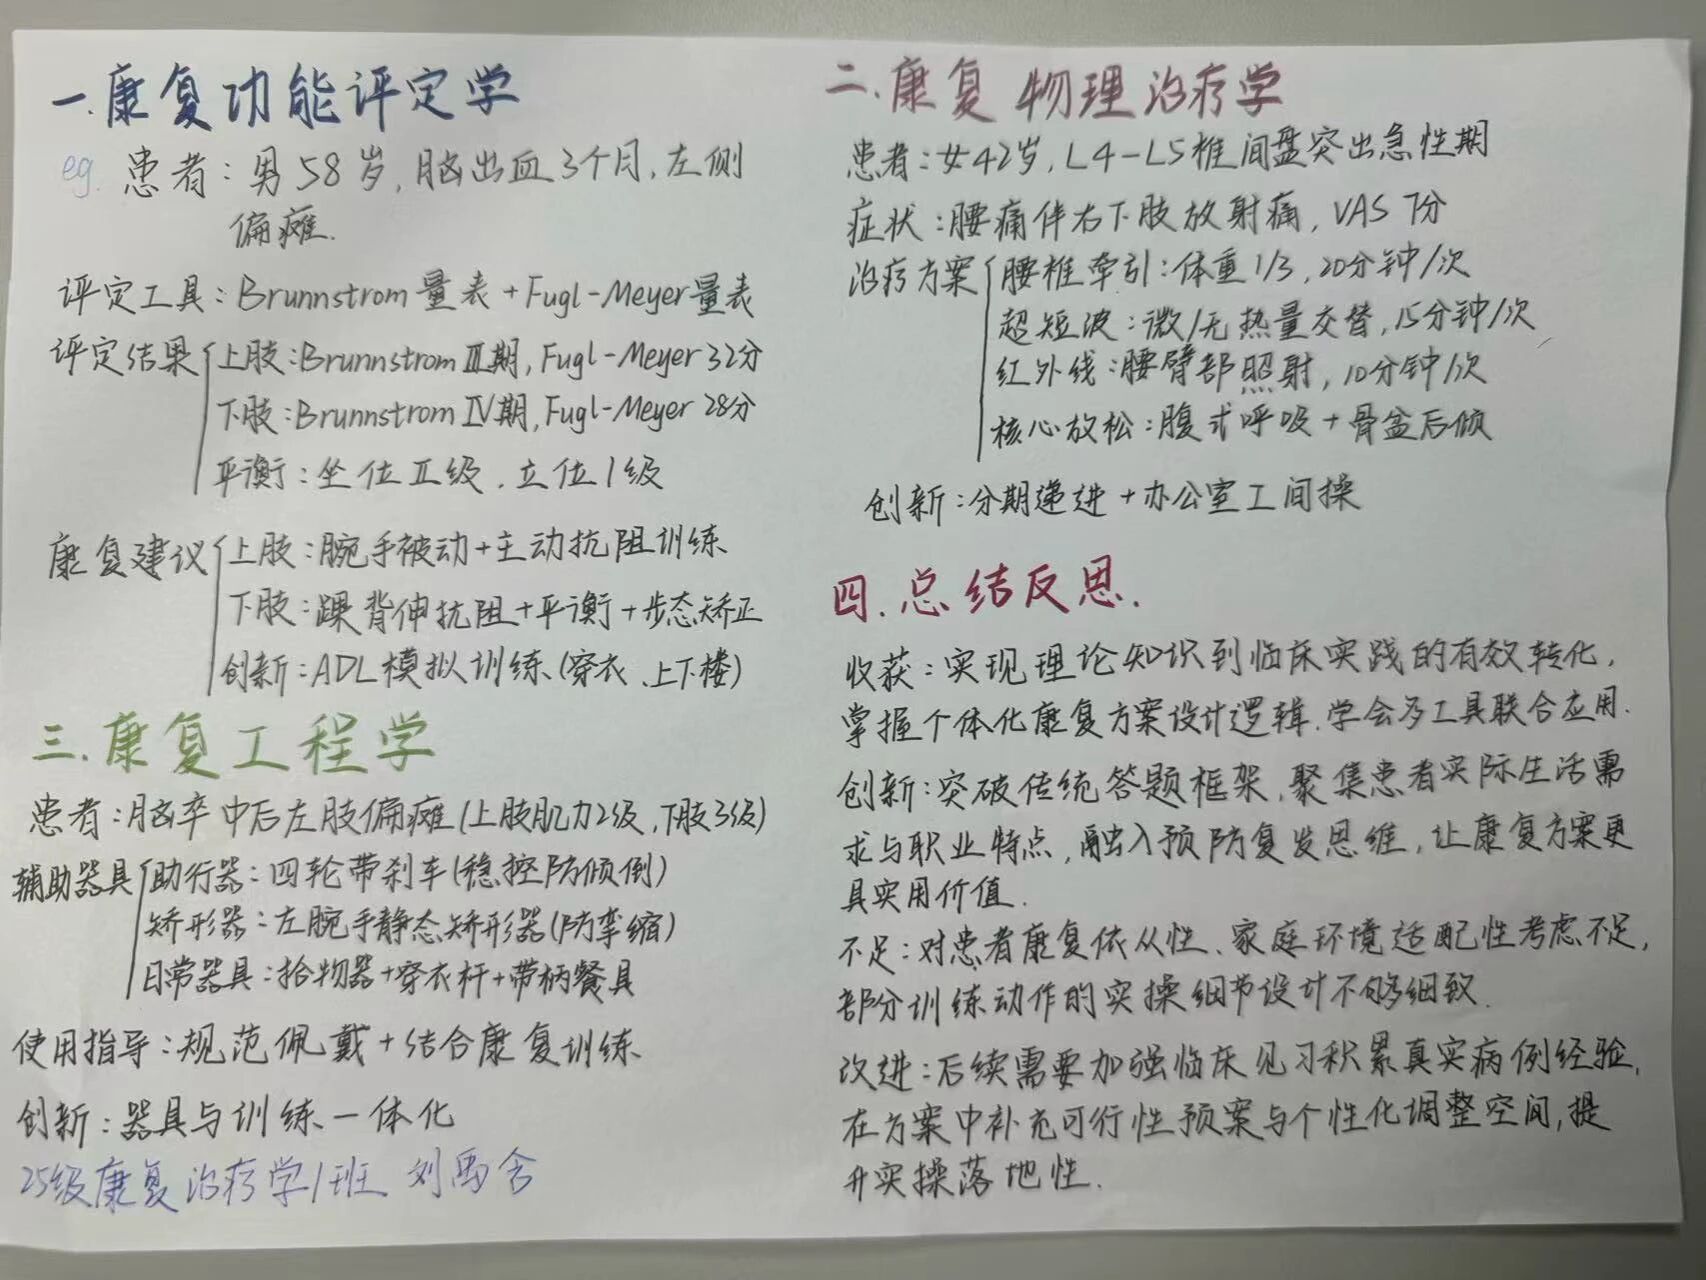 一.康复功能评定学
eg. 患者：男58岁，脑出血3个月，左侧
偏瘫.
评定工具：Brunnstrom量表+Fugl-Meyer量表
评定结果 上肢：BrunnstromⅢ期，Fugl-Meyer 32分
下肢：BrunnstromⅣ期，Fugl-Meyer 28分
平衡：坐位Ⅱ级．立位1级
康复建议 上肢：腕手被动+主动抗阻训练
下肢：踝背伸抗阻+平衡+步态矫正
创新：ADL模拟训练(穿衣、上下楼)
三.康复工程学
患者：脑卒中后左肢偏瘫(上肢肌力2级，下肢3级)
辅助器具 助行器：四轮带刹车(稳控防倾倒)
矫形器：左腕手静态矫形器(防挛缩)
日常器具：拾物器+穿衣杆+带柄餐具
使用指导：规范佩戴+结合康复训练
创新：器具与训练一体化
25级康复治疗学1班 刘禹含
二.康复物理治疗学
患者：女42岁，L4-L5椎间盘突出急性期
症状：腰痛伴右下肢放射痛，VAS 7分
治疗方案 腰椎牵引：体重1/3，20分钟/次
超短波：微/无热量交替，15分钟/次
红外线：腰臂部照射，10分钟/次
核心放松：腹式呼吸+骨盆后倾
创新：分期递进+办公室工间操
四.总结反思.
收获：实现理论知识到临床实践的有效转化，
掌握个体化康复方案设计逻辑.学会多工具联合应用.
创新：突破传统答题框架，聚集患者实际生活需
求与职业特点，融入预防复发思维，让康复方案更
具实用价值.
不足：对患者康复依从性、家庭环境适配性考虑不足，
部分训练动作的实操细节设计不够细致.
改进：后续需要加强临床见习积累真实病例经验，
在方案中补充可行性预案与个性化调整空间，提
升实操落地性.